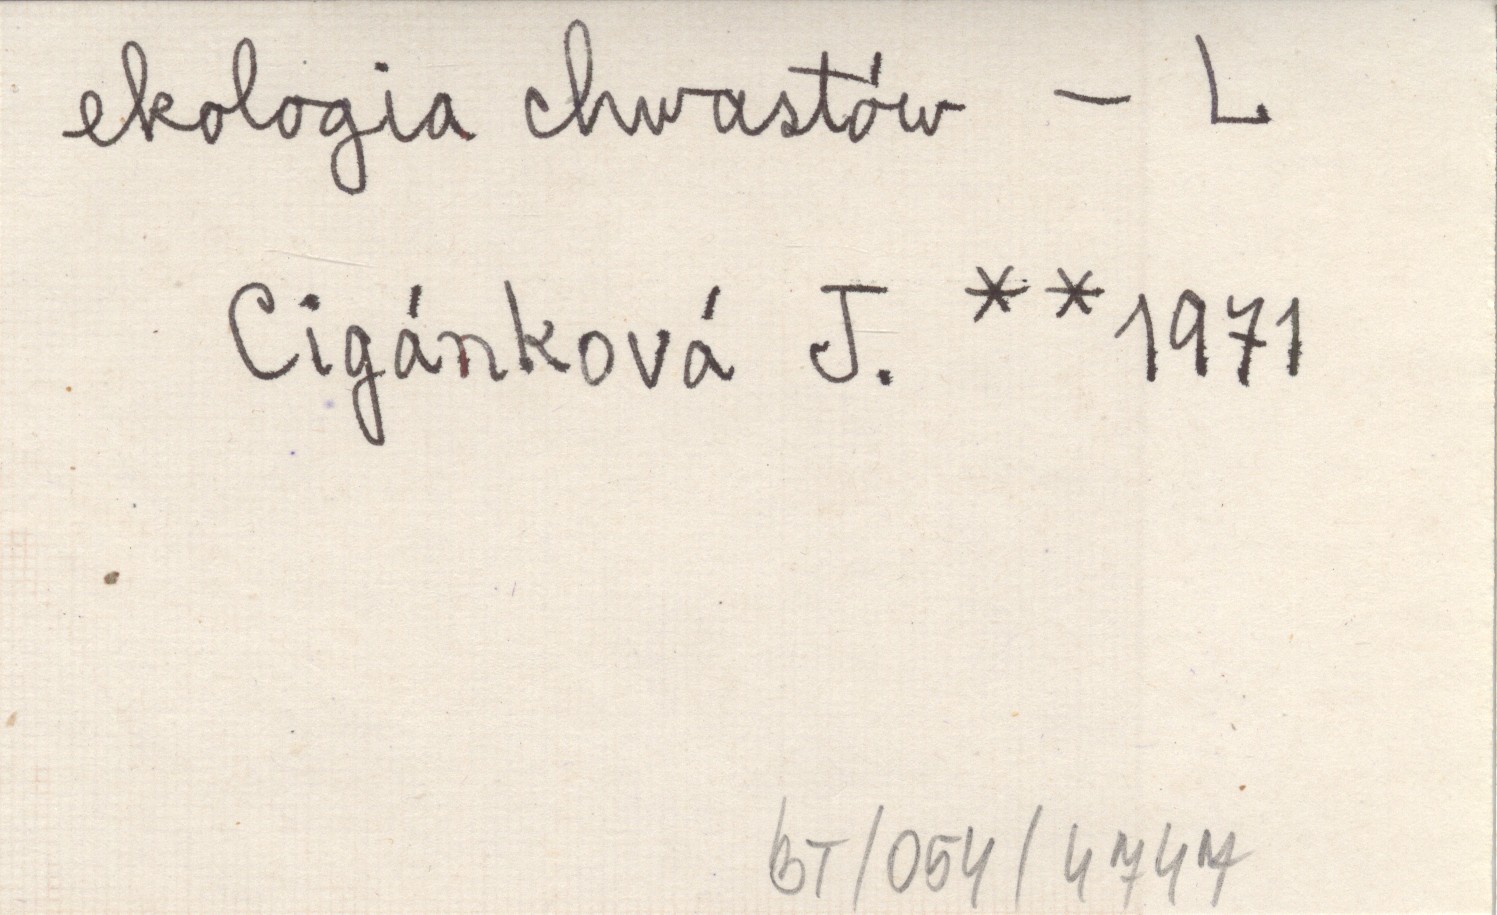 ekologia chwastów – L.
Cigánková J. **1971
bT/054/4747